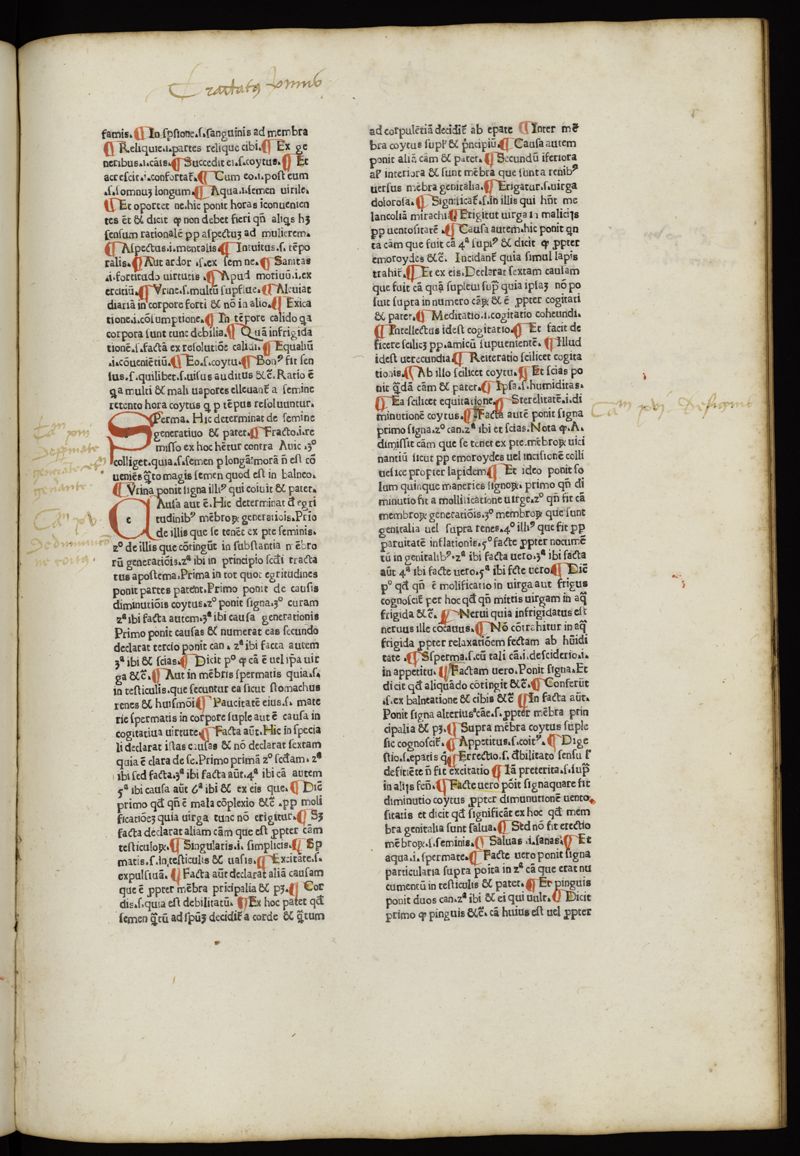 Tractatus primus
famis. ¶ In spsione.s.sanguinis ad membra
¶ Reliquie.i.partes relique cibi. ¶ Ex ge
neribus.i.cāis. ¶ Succedit ei.s.coytus. ¶ Et
acrescit.i.confortaƭ. ¶ Cum eo.i.post eum
.s.somnuꝫ longum. ¶ Aqua.i.semen uirile.
¶ Et oportet ne.hic ponit horas iconuenien
tes ēt & dicit ꝙ non debet fieri qn̄ aliqs hꝫ
sensum rationalē pp aspectuꝫ ad mulierem.
¶ Aspectus.i.mentalis. ¶ Intuitus.s.tēpo
ralis. ¶ Aut ardor .s.ex semine. ¶ Sanitas
.i.fortitudo uirtutis. ¶ Apud motiuū.i.ex
ercitiū. ¶ Vrine.s.multū supflue. ¶ Alcuiat
diariā in corpore forti & nō in alio. ¶ Exica
tione.i.cōsumptione. ¶ In tēpore calido qa
corpora sunt tunc debilia. ¶ Quā infrigida
tionē.s.factā ex resolutiōe calidi. ¶ Equaliū
.i.cōueniētiū. ¶ Eo.s.coytu. ¶ Bonꝰ fit sen
sus.s.quilibet.s.uisus auditus &c̄. Ratio ē
qa multi & mali uapores elleuanƭ a semine
retento hora coytus q p tēpus resoluuntur.
SPerma. Hic determinat de semine
generatiuo & patet. ¶ Fracto.i.re
misso ex hoc hētur contra Auic .3°
colliget.quia.s.semen p longā morā n̄ est cō
ueniēs q̄to magis semen quod est in balneo.
¶ Vrina ponit signa illiꝰ qui coiuit & pater.
Causa aut ē. Hic determinat d̄ egri
tudinibꝰ mēbroꝝ generatiōis. Prio
de illis que se tenēt ex pte seminis.
2° de illis que cōtingūt in substantia mēbro
rū generatiōis.2ᵃ ibi in principio scdi tracta
tus apostema. Prima in tot quot egritudines
ponit partes patent. Primo ponit de causis
diminutiōis coytus.2° ponit signa.3° curam
2ᵃ ibi facta autem.3ᵃ ibi causa generationis
Primo ponit causas & numerat eas secundo
declarat tercio ponit can . 2ᵃ ibi facta autem
3ᵃ ibi & scias. ¶ Dicit p° ꝙ cā ē uel ipa uir
ga &c̄. ¶ Aut in mēbris spermatis quia.s.
in testiculis.que secuntur ea sicut stomachus
renes & huiusmōi ¶ Paucitatē eius.s. mate
rie spermatis in corpore suple aut ē causa in
cogitatiua uirtute. ¶ Facta aūt. Hic in specia
li declarat istas causas & nō declarat sextam
quia ē clara de se. Primo primā 2° scdam. 2ᵃ
ibi sed facta.3ᵃ ibi facta aūt.4ᵃ ibi cā autem
5ᵃ ibi causa aūt 6ᵃ ibi & ex eis que. ¶ Dic̄
primo qd qn̄ ē mala cōplexio &c̄ .pp moli
ficationeꝫ quia uirga tunc nō erigitur. ¶ Sꝫ
facta declarat aliam cām que est ꝑpter cām
testiculoꝝ. ¶ Singularis.i. simplicis. ¶ Sp
matis.s.in testiculis & uasis. ¶ Excitate.s.
expulsiuā. ¶ Facta aūt declarat aliā causam
que ē ꝑpter mēbra pricipalia & pꝫ. ¶ Cor
dis.s.quia est debilitatū. ¶ Ex hoc patet qd
semen q̄tū ad spūꝫ deciditƭ a corde & q̄tum
ad corpulētiā deciditƭ ab epate ¶ Inter mē
bra coytus suplꝰ & p̄ncipiū. ¶ Causa autem
ponit aliā cām & pater. ¶ Secundū iferiora
aľ interiora & sunt mēbra que sunt a renibꝰ
uersus mēbra genitalia. ¶ Erigatur.s.uirga
dolorosa. ¶ Significaƭ.s.in illis qui hn̄t me
lancoliā mirachi ¶ Erigitur uirga in malicijs
pp uentositatē. ¶ Causa autem.hic ponit qn
tā cām que fuit cā 4ᵃ supiꝰ & dicit ꝙ ꝑpter
emoroydes &c̄. Incidanƭ quia simul lapis
trahiƭ. ¶ Et ex eis. Declarat sextam causam
que fuit cā quā supleui supᵃ quia ipsaꝫ nō po
suit supra in numero cāꝝ & ē ꝑpter cogitati
& pater. ¶ Meditatio.i.cogitatio coheundi.
¶ Intellectus idest cogitatio. ¶ Et facit de
ficere scilicꝫ pp.amicū supuenientē. ¶ Illud
idest uerecundia ¶ Reiteratio scilicet cogita
tionis. ¶ Ab illo scilicet coytu. ¶ Et scias po
nit q̄dā cām & pater. ¶ Ipsa.s.humiditas.
¶ Ea scilicet equitatione. ¶ Sterelitatē.i.di
minutionē coytus. ¶ Facta autē ponit signa
primo signa.2° can.2ᵃ ibi et scias. Nota ꝙ.A.
dimissit cām que se tenet ex pte.mēbroꝝ uici
nantiū sicut pp emoroydes uel incisionē colli
uesice propter lapidem ¶ Et ideo ponit so
lum quinque maneries signoꝝ. primo qn̄ di
minutio fit a mollificatione uirge.2° qn̄ fit cā
membroꝝ generatiōis.3° membroꝝ que sunt
genitalia uel supra renes.4° illiꝰ que fit pp
paruitatē inflationis.5° facte ꝑpter nocumē
tū in genitalibꝰ.2ᵃ ibi facta uero.3ᵃ ibi facta
aūt 4ᵃ ibi facta uero.5ᵃ ibi fcte uero ¶ Dic̄
p° qd qn̄ ē molificatio in uirga aut frigus
cognosciƭ per hoc qd qn̄ mittis uirgam in aq̄
frigida &c̄. ¶ Nerui quia infrigidatus est
neruus ille cōcauus. ¶ Nō cōtrahitur in aq̄
frigida ꝑpter relaxatiōem fectam ab hūidi
tate . ¶ Ssperma.s.cū tali cā.i.desciderio.i.
in appetitu. ¶ Factam uero. Ponit signa. Et
dicit qd aliquādo cōtingit &c̄. ¶ Conferūt
.s.ex balneatione & cibis &c̄ ¶ In facta aūt.
Ponit signa alteriusᵃ cāe.s.ꝑpter mēbra prin
cipalia & pꝫ. ¶ Supra mēbra coytus suple
sic cognosciƭ. ¶ Appetitus.s.coitꝰ. ¶ Dige
stio.s.epatis q̄ ¶ Errectio.s. dbilitato sensu sꝰ
deficiēte n̄ fit excitatio ¶ Iā preterita.s.supᵃ
in alijs sen̄. ¶ Facte uero pōit signaquare fit
diminutio coytus ꝑpter diminutionē uento
sitatis et dicit qd significāt ex hoc qd mem
bra genitalia sunt salua. ¶ Sed nō fit erectio
mēbroꝝ.s.seminis. ¶ Saluas .i.sanas. ¶ Et
aqua.i.spermate. ¶ Facte uero ponit signa
particularia supra posita in 2ᵃ cā que erat nu
cumentū in testiculis & patet. ¶ Et pinguis
ponit duos can.2ᵃ ibi & ei qui uult. ¶ Dicit
primo ꝙ pinguis &c̄. cā huius est uel ꝑpter
Caᵐ xvi. De signis
Caᵐ xv.
De diminutio
ne coitus